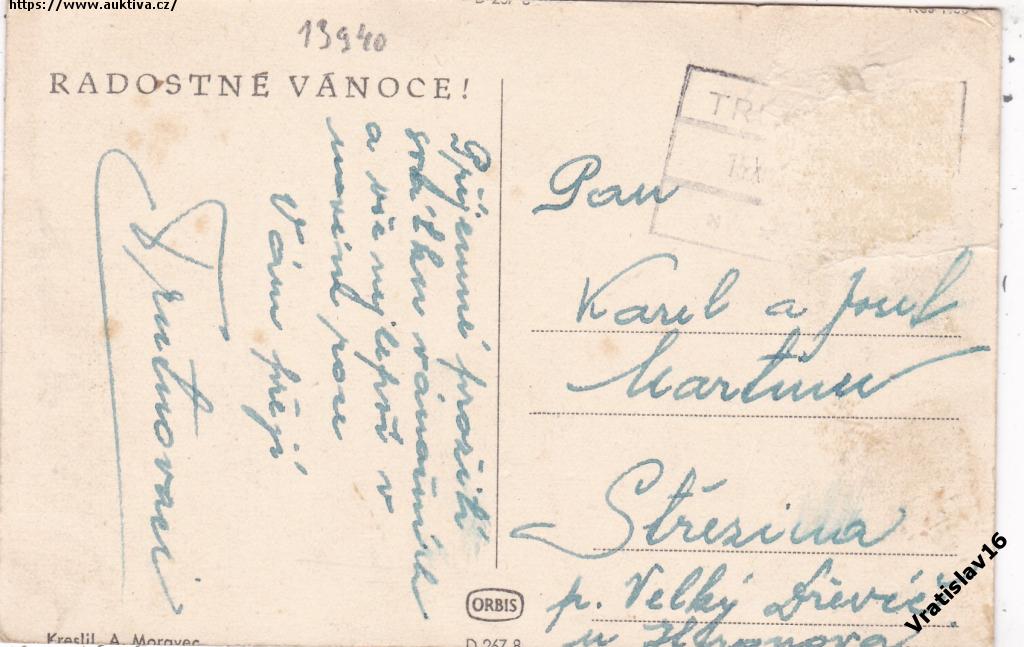 https://www.auktiva.cz/
13940
RADOSTNÉ VÁNOCE!
Příjemné prožití
svátků vánočních
a vše nejlepší v
novém roce
Vám přejí
Trutnovaci
Pan
Karel a Josef
Martinu
Střezina
p. Velký Dřevíč
u Hronova
ORBIS
Kreslil A. Moravec
D 267 8
Vratislav16